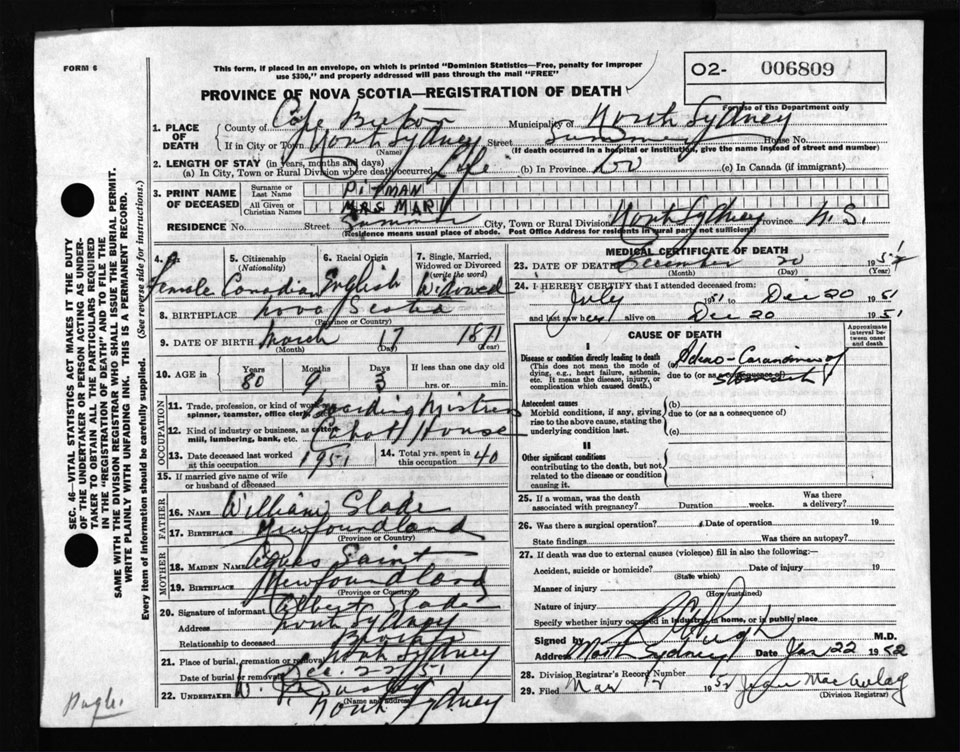 FORM 6
This form, if placed in an envelope, on which is printed "Dominion Statistics—Free, penalty for improper
use $300," and properly addressed will pass through the mail "FREE"
02- 006809
For use of the Department only
PROVINCE OF NOVA SCOTIA—REGISTRATION OF DEATH
1. PLACE OF DEATH
County of Cape Breton Municipality of North Sydney
If in City or Town North Sydney Street House No.
(Name) (If death occurred in a hospital or institution, give the name instead of street and number)
2. LENGTH OF STAY (in years, months and days)
(a) In City, Town or Rural Division where death occurred Life (b) In Province Do (c) In Canada (if immigrant)
3. PRINT NAME OF DECEASED
Surname or Last Name PITMAN
All Given or Christian Names MRS MARY
RESIDENCE No. Street Summer City, Town or Rural Division North Sydney Province N.S.
(Residence means usual place of abode. Post Office Address for residents in rural part not sufficient)
4. Female
5. Citizenship (Nationality) Canadian
6. Racial Origin English
7. Single, Married, Widowed or Divorced (write the word) Widowed
8. BIRTHPLACE Nova Scotia
(Province or Country)
9. DATE OF BIRTH March 17 1871
(Month) (Day) (Year)
10. AGE in Years 80 Months 9 Days 3 If less than one day old
hrs. or min.
OCCUPATION
11. Trade, profession, or kind of work as spinner, teamster, office clerk Boarding Mistress
12. Kind of industry or business, as cotton mill, lumbering, bank, etc. Cabot House
13. Date deceased last worked at this occupation 1951
14. Total yrs. spent in this occupation 40
15. If married give name of wife or husband of deceased
FATHER
16. NAME William Slade
17. BIRTHPLACE Newfoundland
(Province or Country)
MOTHER
18. MAIDEN NAME Saint
19. BIRTHPLACE Newfoundland
(Province or Country)
20. Signature of informant Albert Slade
Address North Sydney
Relationship to deceased Brother
21. Place of burial, cremation or removal North Sydney
Date of burial or removal Dec. 22/51
22. UNDERTAKER W. J. Dooley
(Name and address)
North Sydney
MEDICAL CERTIFICATE OF DEATH
23. DATE OF DEATH December 20 195
(Month) (Day) (Year)
24. I HEREBY CERTIFY that I attended deceased from:
July 1951 to Dec 20 1951
and last saw her alive on Dec 20 1951
CAUSE OF DEATH
Approximate interval between onset and death
I
Disease or condition directly leading to death
(This does not mean the mode of dying, e.g., heart failure, asthenia, etc. It means the disease, injury, or complication which caused death.)
Adeno-Carcinoma of
due to (or as stomach
Antecedent causes
Morbid conditions, if any, giving rise to the above cause, stating the underlying condition last.
(b)
due to (or as a consequence of)
(c)
II
Other significant conditions
contributing to the death, but not related to the disease or condition causing it.
25. If a woman, was the death associated with pregnancy? Duration weeks. Was there a delivery?
26. Was there a surgical operation? Date of operation 19
State findings Was there an autopsy?
27. If death was due to external causes (violence) fill in also the following:—
Accident, suicide or homicide? Date of injury 19
(State which)
Manner of injury
(How sustained)
Nature of injury
Specify whether injury occurred in industry, in home, or in public place
Signed by M.D.
Address North Sydney Date Jan 22 1952
28. Division Registrar's Record Number
29. Filed Mar 12 1952 MacAulay
(Division Registrar)
SEC. 46—VITAL STATISTICS ACT MAKES IT THE DUTY
OF THE UNDERTAKER OR PERSON ACTING AS UNDER-
TAKER TO OBTAIN ALL THE PARTICULARS REQUIRED
IN THE "REGISTRATION OF DEATH" AND TO FILE THE
SAME WITH THE DIVISION REGISTRAR WHO SHALL ISSUE THE BURIAL PERMIT.
WRITE PLAINLY WITH UNFADING INK. THIS IS A PERMANENT RECORD.
Every item of information should be carefully supplied. (See reverse side for instructions.)